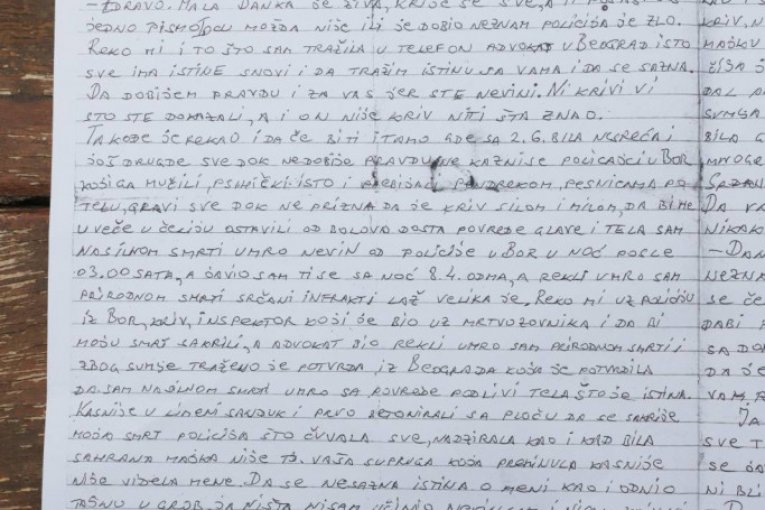 - ZDRAVO. MALA DANKA JE ŽIVA, KRIJE SE SVE, A
JEDNO PISMO MOŽDA NIJE ILI JE DOBIO NEZNAM POLICIJA JE ZLO.
REKO MI I TO ŠTO SAM TRAŽILA U TELEFON ADVOKAT U BEOGRAD ISTO
SVE IMA ISTINE SNOVI I DA TRAŽIM ISTINU SA VAMA I DA SE SAZNA.
DA DOBIJEM PRAVDU I ZA VAS JER STE NEVINI. NI KRIVI VI
STO STE DOKAZALI, A I ON NIJE KRIV NITI ŠTA ZNAO.
TAKOĐE JE REKAO I DA ČE BITI I TAMO GDE SA 2.6. BILA NESREĆA I
JOŠ DRUGDE SVE DOK NEDOBIJE PRAVDU NE KAZNI SE POLICAJCI U BOR
KOJI GA MUŽILI, PSIHIČKI ISTO I PREBIJALI PENDREKOM, PESNICAMA PO
TELU, GLAVI SVE DOK NE PRIZNA DA JE KRIV SILOM I MILOM, DA BI ME
U VEČE U ČELIJU OSTAVILI OD BOLOVA DOSTA POVREDE GLAVE I TELA SAM
NASILNOM SMRTI UMRO NEVIN OD POLICIJE U BOR U NOĆ POSLE
03.00 SATA, A JAVIO SAM TI SE SA NOĆ 8.4. ODMA, A REKLI UMRO SAM
PRIRODNOM SMRTI SRČANI INFRAKT I LAŽ VELIKA JE. REKO MI UZ POLICIJU
IZ BOR, KRIV, INSPEKTOR KOJI JE BIO UZ MRTVOZORNIKA I DA BI
MOJU SMRT SAKRILI, A ADVOKAT BIO REKLI UMRO SAM PRIRODNOM SMRTI I
ZBOG SUMJE TRAŽENO JE POTVRDA IZ BEOGRADA KOJA JE POTVRDILA
DA SAM NASILNOM SMRTI UMRO SA POVREDE PODLIVI TELA ŠTO JE ISTINA.
KASNIJE U LIMENI SANDUK I PRVO BETONIRALI SA PLOČU DA SE SAKRIJE
MOJA SMRT POLICIJA ŠTO ČUVALA SVE, NADZIRALA KAO I KAD BILA
SAHRANA MAJKA NIJE TJ. VAŠA SUPRUGA KOJA PREMINULA KASNIJE
NIJE VIDELA MENE. DA SE NESAZNA ISTINA O MENI KAO I ODNIO
TAJNU U GROB. JA NIŠTA NISAM
KRIV, N
MAJKU
DAL
SUMGA
BILA
MNOGE
DA VA
NIKAKO
- DAN
NEZNA
SE ČE
DA BI
SA DO
DA JE
VAMA
JA
SVE T
SE
NI BLI